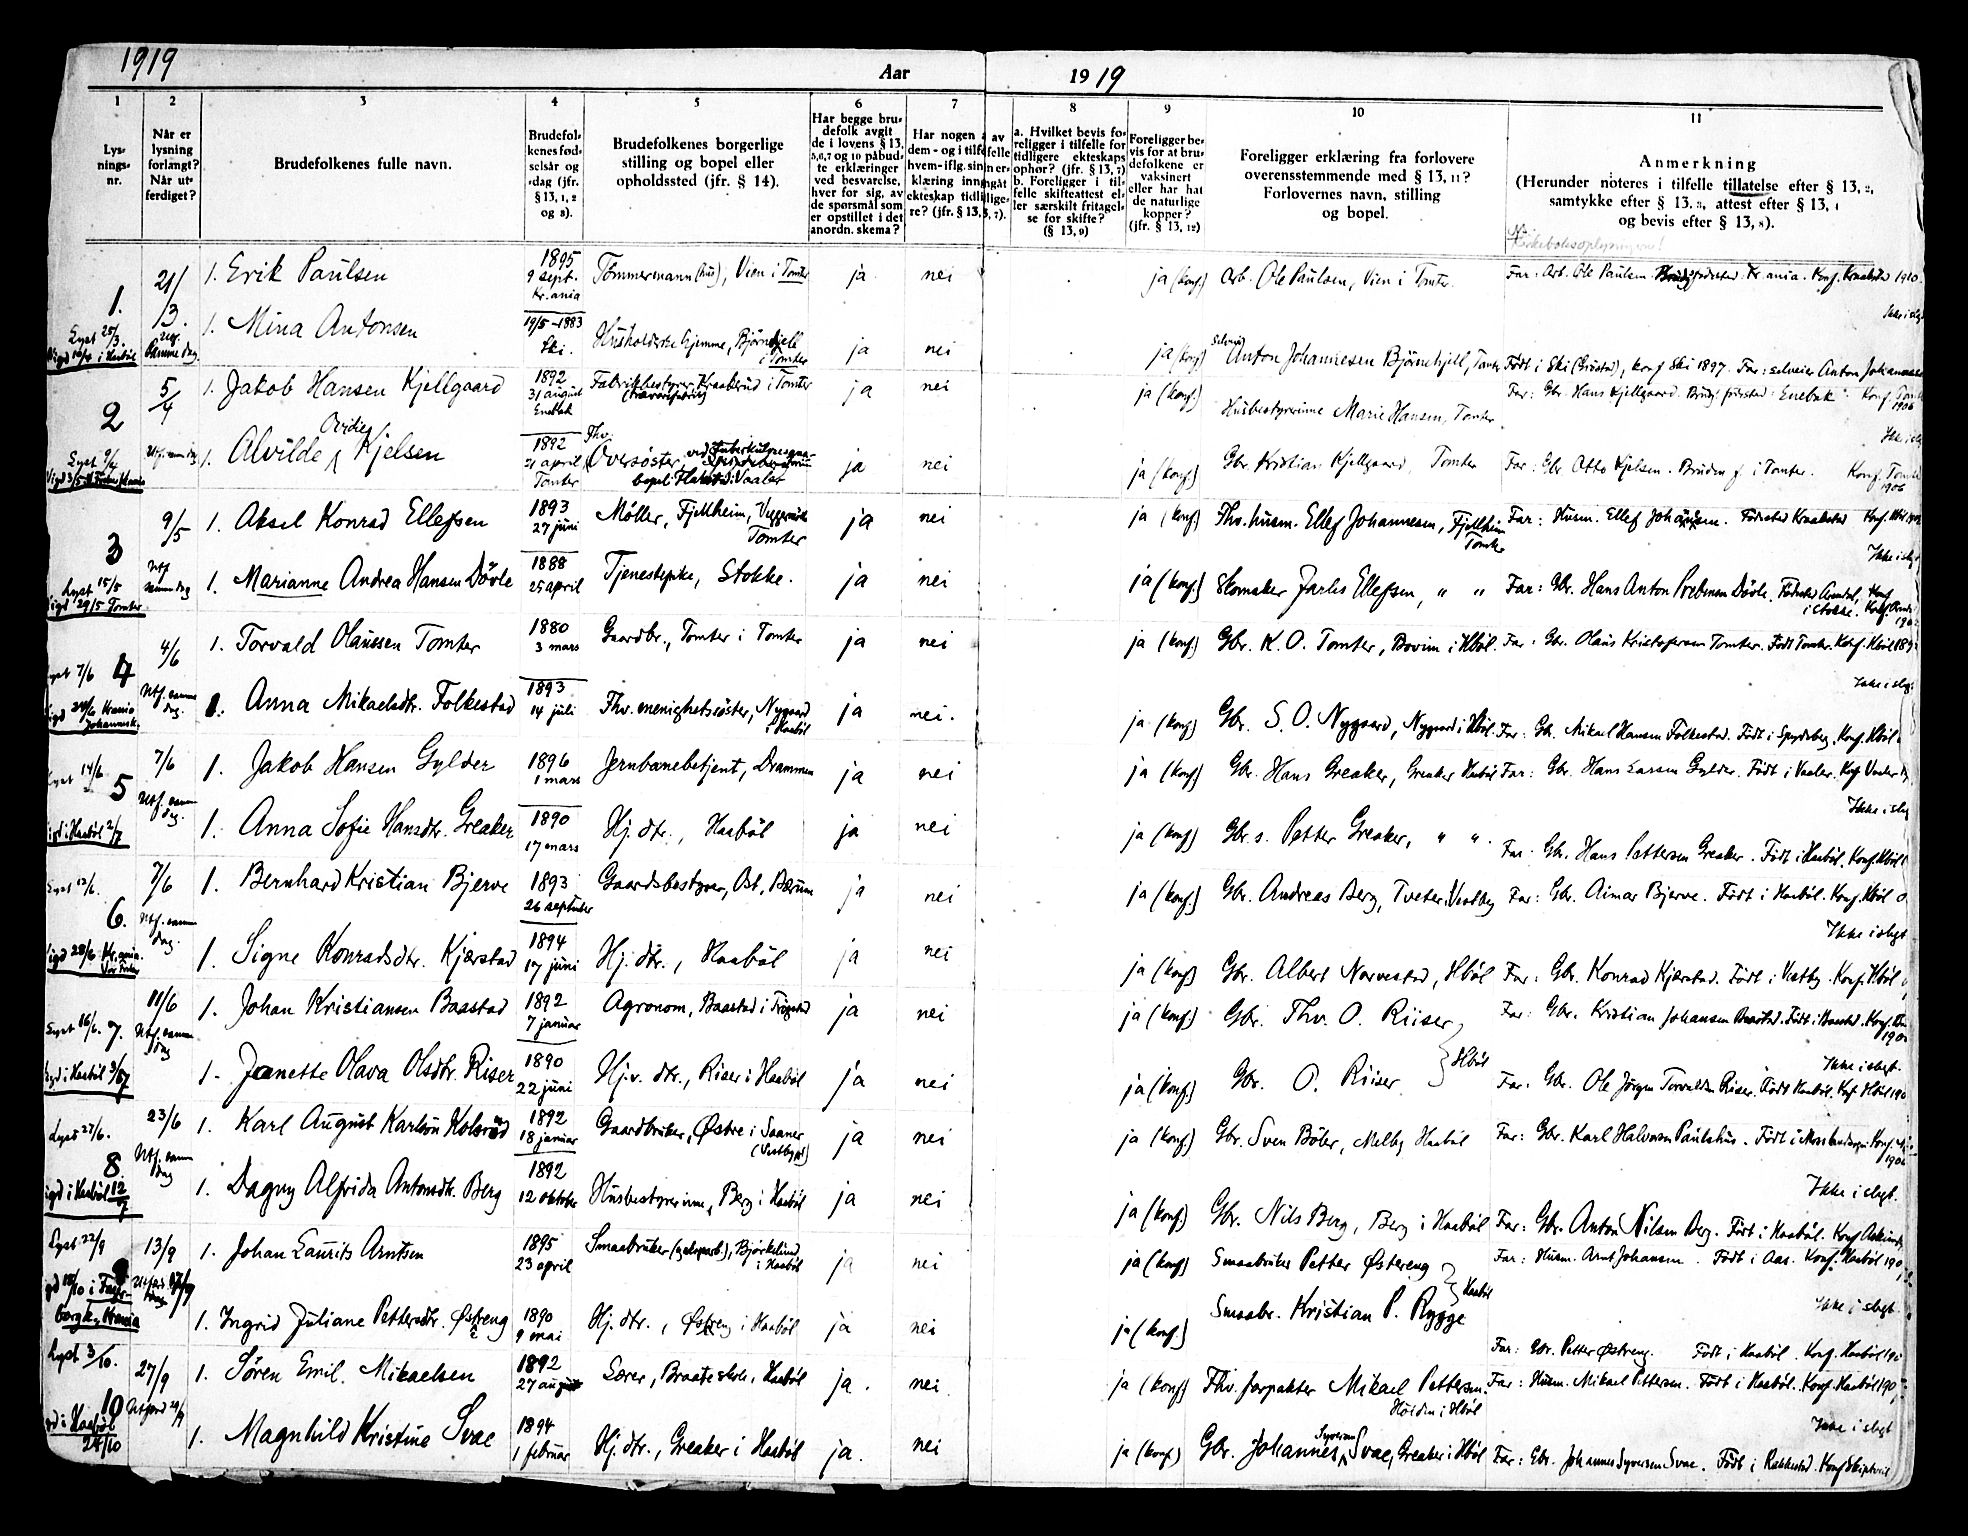 1919
Aar
1919
1
2
3
4
5
6
7
8
9
10
11
Lys-
nings-
nr.
Når er
lysning
forlangt?
Når ut-
ferdiget?
Brudefolkenes fulle navn.
Brudefol-
kenes fød-
selsår og
-dag (jfr.
§ 13, 1, 2
og 8).
Brudefolkenes borgerlige
stilling og bopel eller
opholdssted (jfr. § 14).
Har begge bru-
defolk avgit
de i lovens § 13,
5,6,7 og 10 påbud-
te erklæringer
ved besvarelse,
hver for sig, av
de spørsmål som
er opstillet i det
anordn. skema?
Har nogen av
dem - og i tilfelle
hvem - iflg. sin er-
klæring inngåt
ekteskap tidlige-
re? (jfr. § 13, 3, 7).
a. Hvilket bevis fo-
religger i tilfelle for
tidligere ekteskaps
ophør? (jfr. § 13, 7)
b. Foreligger i til-
felle skifteattest el-
ler særskilt fritagel-
se for skifte?
(§ 13, 9)
Foreligger be-
vis for at bru-
defolkene er
vaksinert
eller har hat
de naturlige
kopper?
(jfr. § 13, 12)
Foreligger erklæring fra forlovere
overensstemmende med § 13, 11?
Forlovernes navn, stilling
og bopel.
Anmerkning
(Herunder noteres i tilfelle tillatelse efter § 13, 2,
samtykke efter § 13, 3, attest efter § 13, 4
og bevis efter § 13, 8).
1.
Lyst 25/3.
21/
13.
samme dag.
1. Erik Paulsen
1895
9 sept.
Kr.ania
Tømmermann (hus), Vien i Tomter
ja
nei
ja (konf.)
Arb. Ole Paulsen, Vien i Tomter
Far: Arb. Ole Paulsen fødested Kr.ania. Konf. Kraakstad 1910.
1. Mina Antonsen
19/5-1883
Ski.
Husholderske hjemme, Bjørnehjell
i Tomter
ja
nei
ja (konf)
Anton Johannesen Bjørnehjell, Tomter
Født i Ski (Kristad), konf Ski 1897. Far: selveier Anton Johannesen
2
Lyst 9/4
5/4
1. Jakob Hansen Kjellgaard
1892
31 august
Enebak
Fabrikbestyrer, Kraakerud i Tomter
ja
nei
ja (konf.)
Husbestyrerinne Marie Hansen, Tomter
Far: Gbr. Hans Kjellgaard. Brudg. fødested: Enebak Konf. Tomter
1906
1. Alvilde Ovidie Kjelsen
1892
21 april
Tomter
Fhv.
Oversøster, ved Tuberkulose
bopel: i Vaaler
ja
nei
ja (konf)
Gbr. Kristian Kjellgaard, Tomter
Far: Gbr Otto Kjelsen. Bruden f. i Tomter. Konf. Tomter
1906
3
Lyst 15/5
Vigd 29/5 Tomter
9/5
1. Aksel Konrad Ellefsen
1893
27 juni
Møller, Fjellheim,
Tomter
ja
nei
ja (konf)
Fhv. husm. Ellef Johannesen, Fjellheim
Tomter
Far: Husm. Ellef Johannesen. Fødested Kraakstad
Ikke i slegt
1. Marianne Andrea Hansen Døvle
1888
25 april
Tjenestepike, Stokke.
ja
nei
ja (konf.)
Skomaker Jarles Ellefsen, " "
Far: Gbr. Hans Anton Døvle. Fødested Arendal, Konf
i Stokke.
4
Lyst 7/6
4/6
Utf. samme
dag.
1. Torvald Olaussen Tomter
1880
3 mars
Gaardbr., Tomter i Tomter
ja
nei
ja (konf.)
Gbr. K. O. Tomter, Bovim i Hbøl.
Far: Gbr. Olaus Kristofersen Tomter. Født Tomter. Konf. Hbøl 189
Ikke i slegt
1. Anna Mikaelsdtr. Folkestad
1893
14 juli
Fhv. menighetssøster, Nygaard
i Haabøl
ja
nei.
ja (konf)
Gbr. S. O. Nygaard, Nygaard i Hbøl.
Far: Gbr. Mikael Hansen Folkestad. Født i Spydeberg. Konf. Hbøl
5
Lyst 14/6
Vigd i Haabøl 2/7
7/6
Utf. samme
dag.
1. Jakob Hansen Gylder
1896
1 mars
Jernbanebetjent, Drammen
ja
nei
ja (konf)
Gbr. Hans Greaker, Greaker Haabøl
Far: Gbr. Hans Larsen Gylder. Født i Vaaler. Konf Vaaler
Ikke i slegt
1. Anna Sofie Hansdtr. Greaker
1890
17 mars
Hj. dtr., Haabøl
ja
nei
ja (konf)
Gbr. s. Petter Greaker, " ".
Far: Gbr. Hans Pettersen Greaker. Født i Haabøl. Konf. Hbøl
6.
Lyst 13/6.
Vigd 28/6 Kr.ania.
7/6
Utf. samme
dag.
1. Bernhard Kristian Bjerve
1893
26 septmber
Gaardsbestyrer, Ost, Bærum
ja
nei
ja (konf.)
Gbr. Andreas Berg, Tveter, Vestby
Far: Gbr. Aimar Bjerve. Født i Haabøl. Konf. Hbøl
Ikke i slegt
1. Signe Konradsdtr. Kjærstad
1894
17 juni
Hj. dtr., Haabøl
ja
nei
ja (konf)
Gbr. Albert Narvestad, Hbøl
Far: Gbr. Konrad Kjærstad. Født i Vestby. Konf. Hbøl
7.
Lyst 16/6.
Vigd i Haabøl 3/7
11/6
Utf. samme
dag
1. Johan Kristiansen Baastad
1892
7 januar
Agronom, Baastad i Trøgstad
ja
nei
ja (konf)
Gbr. Thv. O. Riiser
Far: Gbr. Kristian Johansen Baastad. Født i Baastad.
Hbøl
Ikke i slegt.
1. Jeanette Olava Olsdtr. Riser
1890
22 juni
Hj.v. dtr., Riser i Haabøl
ja
nei
ja (konf.)
Gbr. O. Riiser
Far: Gbr. Ole Jørgen Torvaldsen Riser. Født Haabøl. Konf Hbøl 190
8
Lyst 27/6.
Vigd i Haabøl 12/7
23/6
Utf. samme
dag
1. Karl August Karlsen Kolsrød
1892
18 januar
Gaardbruker, Østre i Saaner
(Vestby)
ja
nei
ja (konf.)
Gbr. Sven Bøler, Melby Haabøl
Far: Gbr. Karl Halvorsen Paulshus. Født i Moss landsogn.
Ikke i slegt.
1. Dagny Alfrida Antonsdtr. Berg
1892
12 oktober
Husbestyrerinne, Berg i Haabøl
ja
nei
ja (konf.)
Gbr. Nils Berg, Berg i Haabøl
Far: Gbr. Anton Nilsen Berg. Født i Haabøl. Konf
9
Lyst 22/9
13/9
1. Johan Laurits Arntsen
1895
23 april
Smaabruker (gelsparb.), Bjørkelund
i Haabøl
ja
nei
ja (konf)
Smaabruker Petter Østereng
Haabøl
Far: Husm. Arnt Johansen. Født i Aas. Konf. Haabøl 190
Ikke i slegt
1. Ingrid Juliane Pettersdtr. Østreng
1890
9 mai
Hj. dtr., Østreng i Haabøl
ja
nei
ja (konf.)
Smaabr. Kristian P. Rygge
Far: Gbr. Petter Østreng. Født i Haabøl. Konf. Haabøl 190
10
Lyst 3/10.
Vigd i Haabøl
24/10
27/9
Utferd 29/9
1. Søren Emil. Mikaelsen
1892
27 august
Lærer, Braate skole, Haabøl
ja.
nei
ja (konf)
Fhv. forpakter Mikael Pettersen.
Høiden i Hbøl
Far: Husm. Mikael Pettersen. Født i Haabøl. Konf. Haabøl 190
Ikke i slegt
1. Magnhild Kristine Svae
1894
1 februar
Hj. dtr., Greaker i Haabøl
ja.
nei
ja (konf)
Gbr. Johannes Syversen Svae, Greaker i Hbøl
Far: Gbr. Johannes Syversen Svae. Født i Rakkestad. Konf Skiptvet